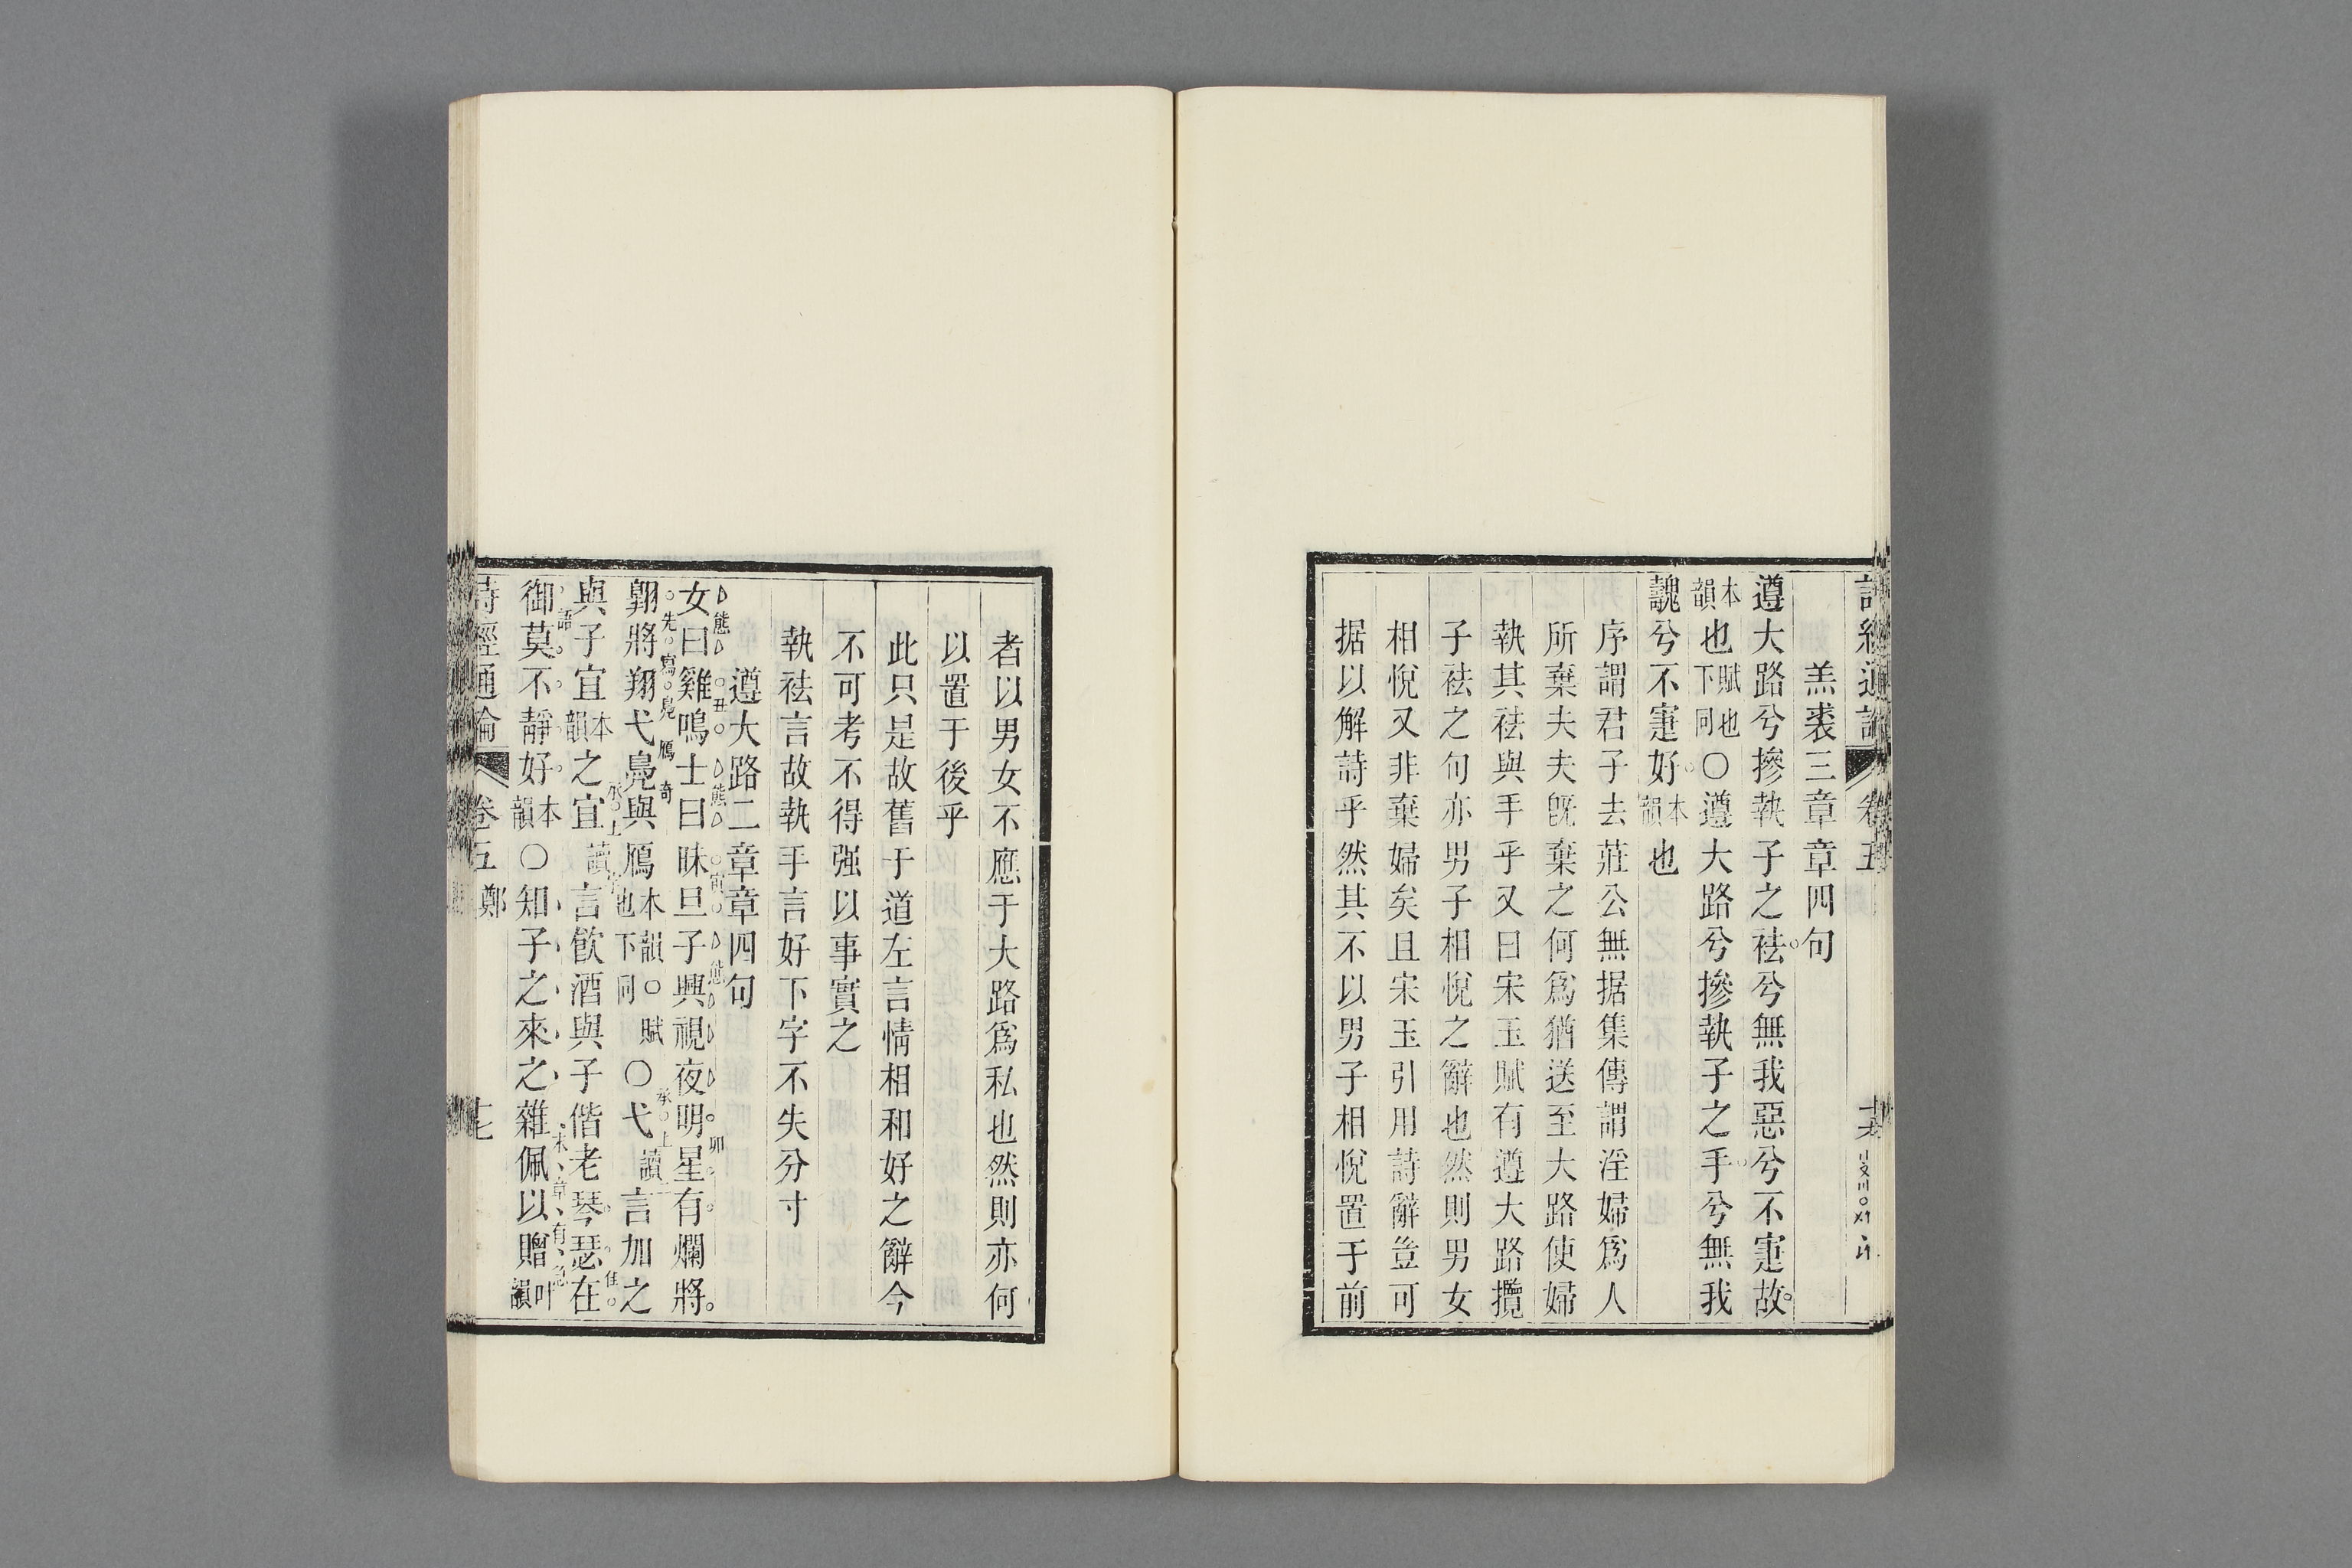 詩經通論 卷五 十六
羔裘三章章四句
遵大路兮摻執子之袪兮無我惡兮不寁故
本韻也賦也下同○遵大路兮摻執子之手兮無我
魗兮不寁好本韻也
序謂君子去莊公無据集傳謂淫婦爲人
所棄夫夫旣棄之何爲猶送至大路使婦
執其袪與手乎又曰宋玉賦有遵大路攬
子袪之句亦男子相悅之辭也然則男女
相悅又非棄婦矣且宋玉引用詩辭豈可
据以解詩乎然其不以男子相悅置于前
者以男女不應于大路爲私也然則亦何
以置于後乎
此只是故舊于道左言情相和好之辭今
不可考不得强以事實之
執袪言故執手言好下字不失分寸
遵大路二章章四句
態 丑 態 寅 態 卯
女曰雞鳴士曰昧旦子興視夜明星有爛將
先寫鳧鴈奇 承上
翺將翔弋鳧與鴈本韻○賦也下同○弋讀言加之
承上
與子宜本韻之宜讀言飮酒與子偕老琴瑟在
佳語
御莫不靜好本韻○知子之來之雜佩以贈叶韻
末章有急
詩經通論 卷五 鄭 十七